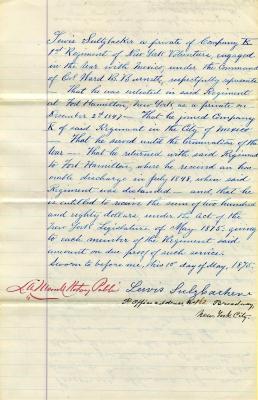 Lewis Sultzbacker a private of Company K
1st Regiment of New York Volunteers, engaged
in the War with Mexico, under the Command
of Col Ward B. Burnett, respectfully represents
— That he was enlisted in said Regiment
at Fort Hamilton, New York as a private on
December 2d 1847 — That he joined Company
K of said Regiment in the City of Mexico
— That he served until the termination of the
War — That he returned with said Regiment
to Fort Hamilton, where he received an hon-
orable discharge in July 1848, when said
Regiment was disbanded — and that he
is entitled to receive the sum of two hundred
and eighty dollars under the act of the
New York Legislature of May 1875, giving
to each member of the Regiment said
amount on due proof of such service.
Sworn to before me, this 10th day of May, 1875.
Notary Public Lewis Sulzbacher
P Office address Broadway
New York City